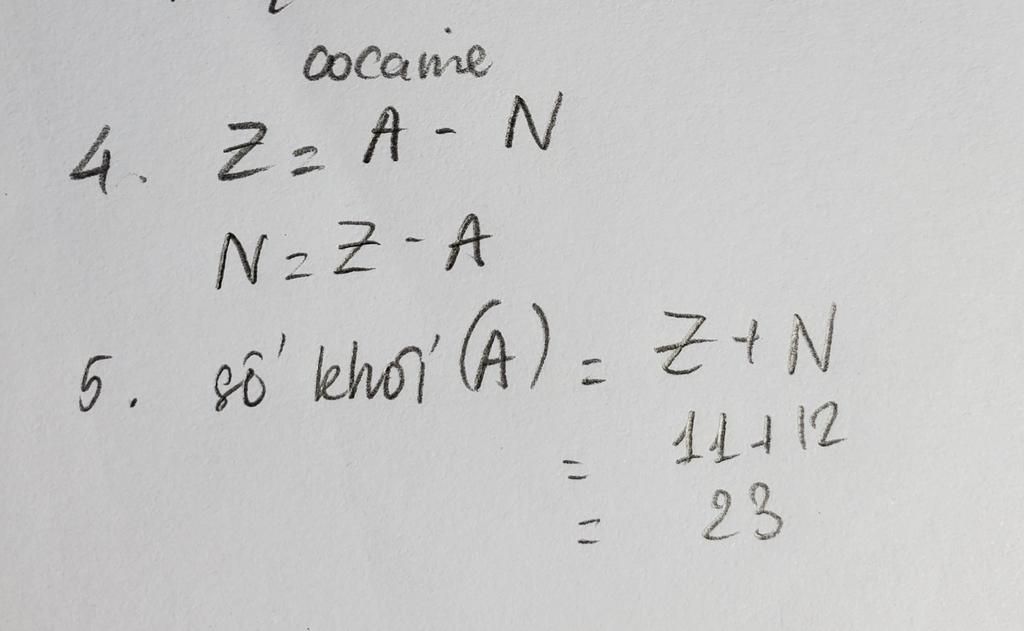 cocaine
4. Z = A - N
N = Z - A
5. số khối (A) = Z + N
= 11 + 12
= 23